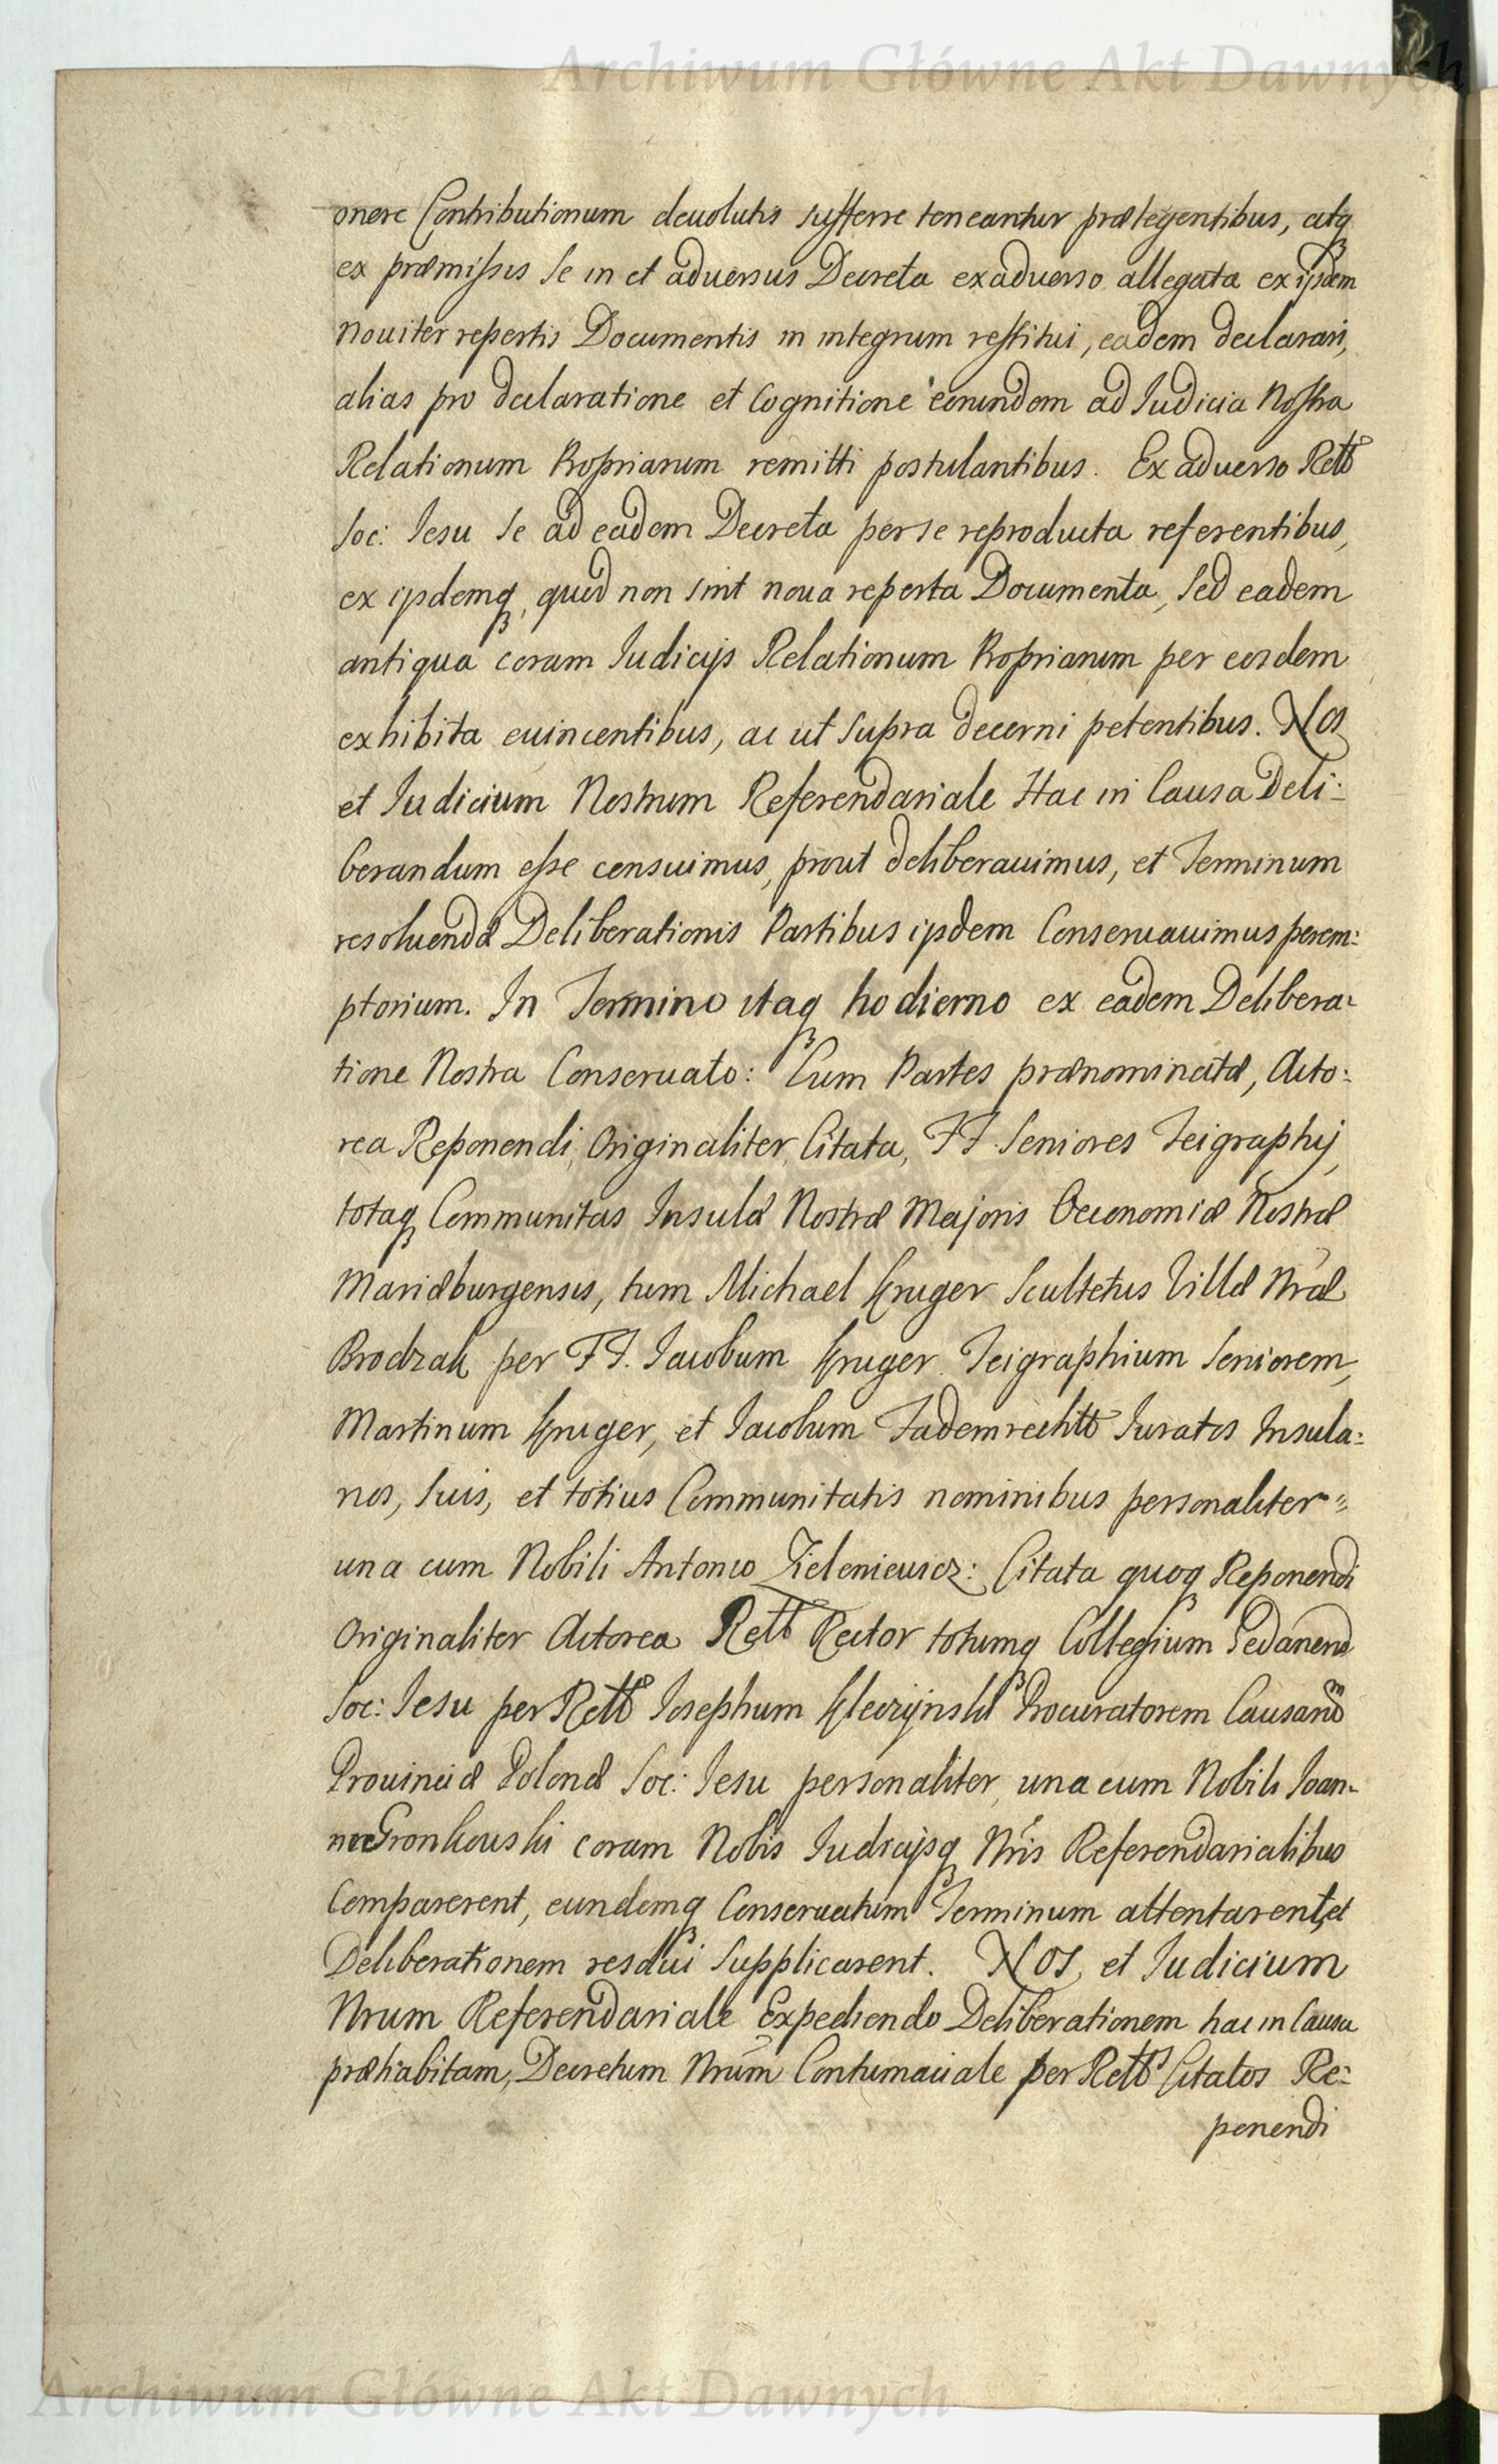 Archiwum Główne Akt Dawnych
onere Contributionum deuolutis sufferre teneantur prætegentibus, atq
ex præmissis se in et aduersus Decreta exaduerso allegata ex ijsdem
nouiter repertis Documentis in integrum restitui, eadem declarari,
alias pro declaratione et Cognitione eorundem ad Iudicia Nostra
Relationum Propriarum remitti postulantibus. Ex aduerso Relb
Soc: Iesu se ad eadem Decreta per se reproducta referentibus,
ex ijsdemq, quod non sint noua reperta Documenta, sed eadem
antiqua coram Iudicijs Relationum Propriarum per eosdem
exhibita euincentibus, ac ut supra decerni petentibus. Nos
et Iudicium Nostrum Referendariale Hac in Causa Deli:
berandum esse censuimus, prout deliberauimus, et Terminum
resoluendæ Deliberationis Partibus ijsdem Conseruauimus perem:
ptorium. In Termino itaq hodierno ex eadem Delibera:
tione Nostra Conseruato: Cum Partes prænominatæ, Acto:
rea Reponendi, Originaliter, Citata, FF. Seniores Teigraphij,
totaq Communitas Insulæ Nostræ Majoris Oeconomiæ Nostræ
Mariæburgensis, tum Michael Kruger Scultetus Villæ Nræ
Brodzak per FF. Iacobum Kruger Teigraphium Seniorem,
Martinum Kruger, et Iacobum Fademrechtt Iuratos Insula:
nos, suis, et totius Communitatis nominibus personaliter
una cum Nobili Antonio Zieleniewicz: Citata quoq Reponendi
Originaliter Actorea Relb Rector totumq Collegium Gedanens
Soc: Iesu per Relb Iosephum Kleczynski Procuratorem Causarum
Prouinciæ Polonæ Soc: Iesu personaliter, una cum Nobili Ioan:
ne Gronkowski coram Nobis Iudicijsq Nris Referendarialibus
Comparerent, eundemq Conseruatum Terminum attentarent, et
Deliberationem resolui supplicarent. Nos, et Iudicium
Nrum Referendariale Expediendo Deliberationem hac in Causa
præhabitam, Decretum Nrum Contumaciale per Relb Citatos Re:
ponendi
Archiwum Główne Akt Dawnych